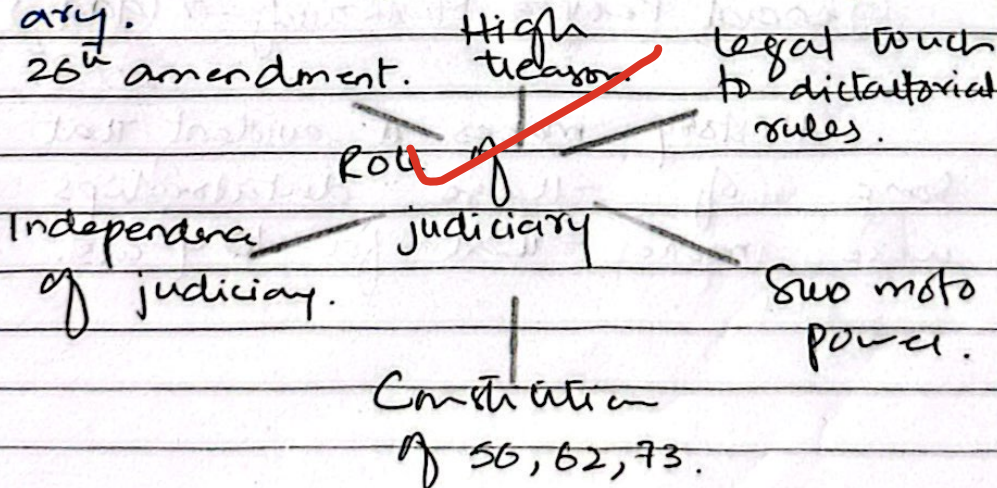 ary.
26th amendment.
High
treason.
Legal touch
to dictaltorial
rules.
Role of
judiciary
Independence
of judiciay.
Suo moto
power.
Constitution
of 56, 62, 73.